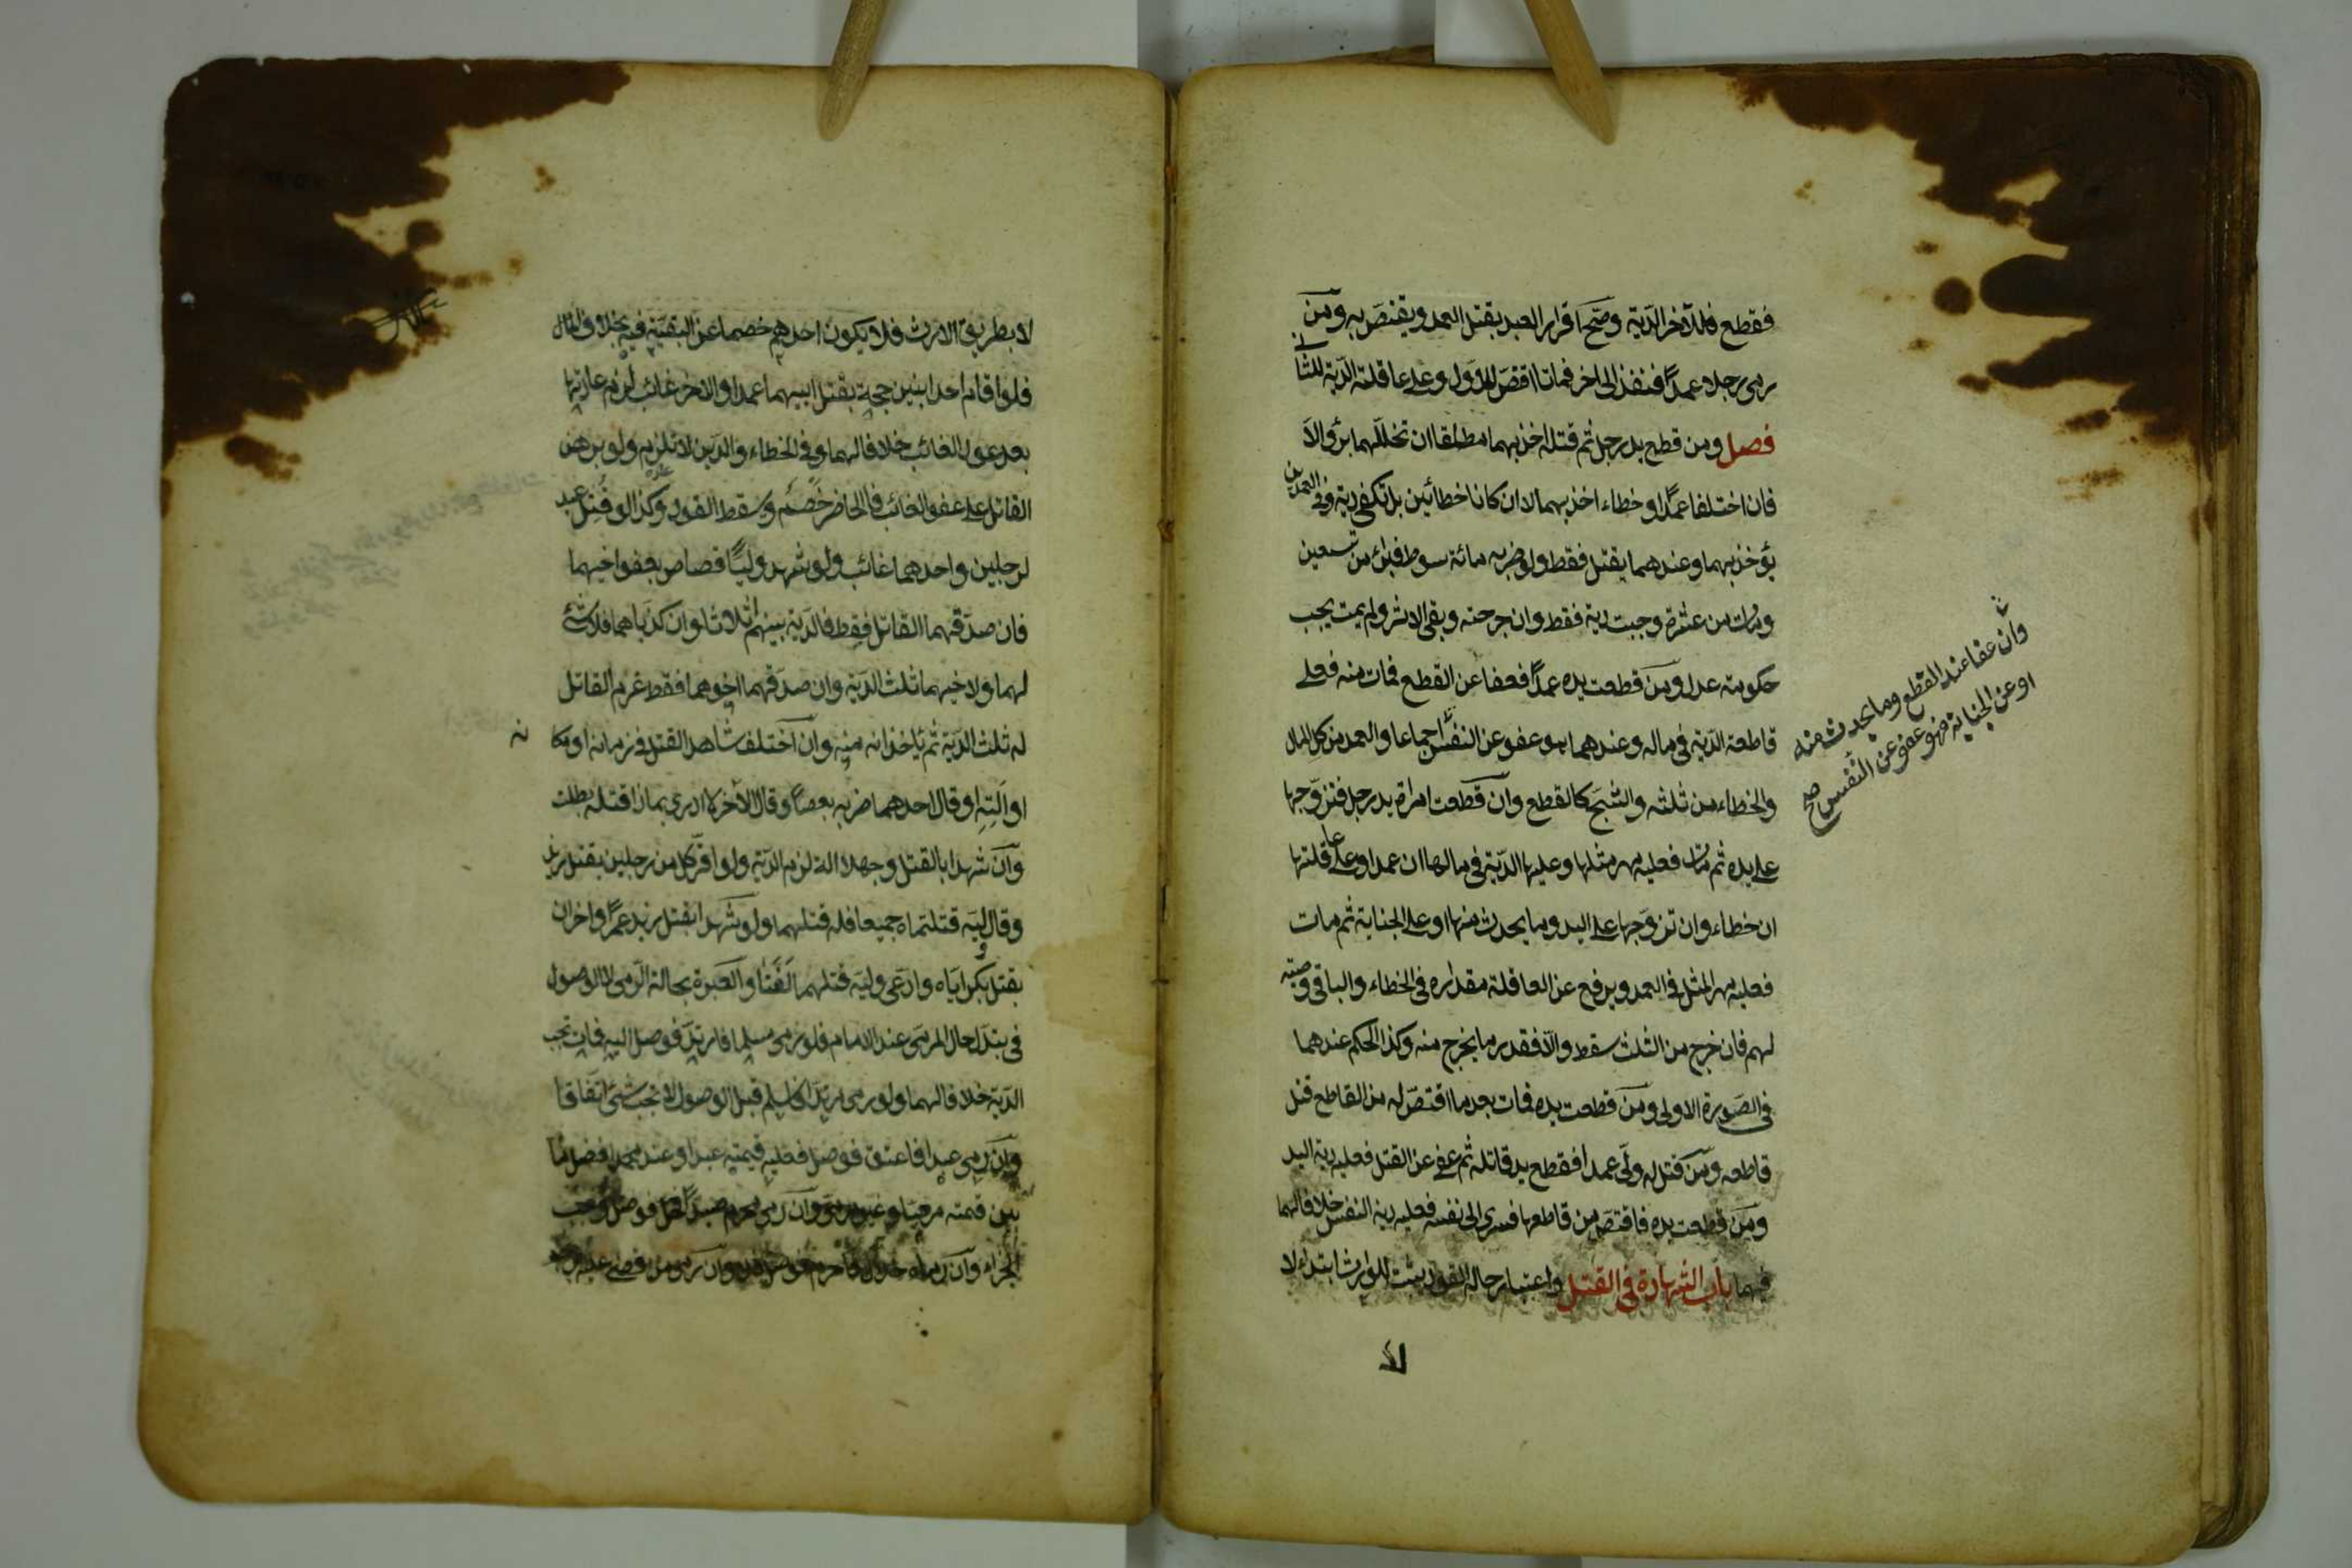 فقطع فللآخر الدّية وصحّ اقرار العبد بقتل العمد ويقتصّ به ومن
رمى رجلا عمدًا فنفذ الى اخر فماتا اقتصّ للاوّل وعلى عاقلته الدّية للثّانى
فصل ومن قطع يد رجل ثم قتله اخذ بهما مطلقا ان تخلّلهما برؤ والاّ
فان اختلفا عمدًا وخطاء اخذ بهما لا ان كانا خطائين بل تكفى دية وفى العمدين
يؤخذ بهما وعندهما يقتل فقط ولو ضربه مائة سوط فبرئ من تسعين
ومات من عشرة وجبت دية فقط وان جرحته وبقى الاثر ولم يمت يجب
حكومة عدل ومن قطعت يده عمدًا فعفا عن القطع فمات منه فعلى
قاطعه الدّية فى ماله وعندهما هو عفو عن النفس اجماعا والعمد من كل المال
والخطاء من ثلثه والشجّ كالقطع وان قطعت امراة يد رجل فتزوّجها
على يده ثم مات فعليه مهر مثلها وعليها الدّية فى مالها ان عمدا وعلى عاقلتها
ان خطاء وان تزوّجها على اليد وما يحدث منها او على الجناية ثم مات
فعليه مهر المثل فى العمد ويرفع عن العاقلة مقداره فى الخطاء والباقى وصية
لهم فان خرج من الثلث سقط والاّ فقدر ما يخرج منه وكذا الحكم عندهما
فى الصّورة الاولى ومن قطعت يده فمات بعد ما اقتصّ له من القاطع قتل
قاطعه ومن قتل له ولىّ عمدا فقطع يد قاتله ثم عفى عن القتل فعليه دية اليد
ومن قطعت يده فاقتصّ من قاطعها فسرى الى نفسه فعليه دية النفس خلافا لهما
فيهما باب الشهادة فى القتل واعتبار حاله القود يثبت للوارث ابتداء لا
لا
وان عفا عند القطع وما يحدث منه
او عن الجناية فهو عفو عن النّفس صح
لا بطريق الارث فلا يكون احدهم خصما عن البقيّة فيه بخلاف المال
فلو اقام احد ابنين حجة بقتل ابيهما عمدا والآخر غائب لزم اعادتها
بعد عود الغائب خلافا لهما وفى الخطاء والدّين لا تلزم ولو برهن
القاتل على عفو الغائب فالحاضر خصم وسقط القود وكذا لو قتل عبد
لرجلين واحدهما غائب ولو شهد وليّا قصاص بعفو اخيهما
فان صدّقهما القاتل فقط فالدّية بينهم اثلاثا وان كذّباهما فلا شئ
لهما ولاخيهما ثلث الدّية وان صدّقهما اخوهما فقط غرم القاتل
له ثلث الدّية ثم ياخذانه منه وان اختلف شاهدا القتل فى زمانه او مكا
نه
او آلته او قال احدهما ضربه بعصا وقال الآخر لا ادرى بماذا قتله بطلت
وان شهدا بالقتل وجهلا الآلة لزم الدّية ولو اقرّ كل من رجلين بقتل زيد
وقال وليّه قتلتماه جميعا فله قتلهما ولو شهدا بقتل زيد عمرًا واخران
بقتل بكر ايّاه وادّعى وليّه قتلهما لغتا والعبرة بحالة الرّمى لا الوصول
فى تبدّل حال المرمى عند الامام فلو رمى مسلما فارتدّ فوصل اليه فمات تجب
الدّية خلافا لهما ولو رمى مرتدّا فاسلم قبل الوصول لا تجب شئ اتّفاقا
وان رمى عبدا فاعتق فوصل فعليه قيمته عبدا وعند محمد فضل ما
بين قيمته مرميّا وغير مرمىّ وان رمى محرم صيدًا فحلّ فوصل وجب
الجزاء وان رماه حلال فاحرم فوصل فلا وان رمى من قضى عليه